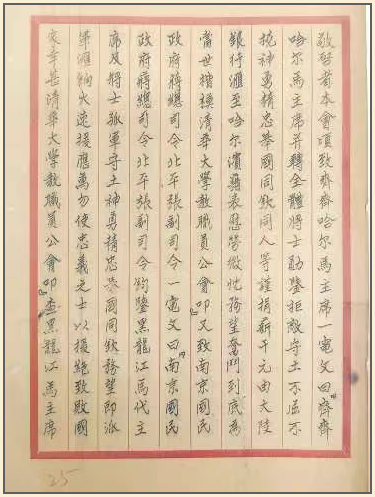 敬啓者本會頃致齊齊哈尔馬主席一電文曰『齊齊
哈尔馬主席并轉全體將士勛鑒拒敵守土不屈不
撓神勇精忠舉國同欽同人等謹捐薪千元由大陸
銀行滙至哈尔濱藉表慰勞微忱務望奮鬥到底為
當世楷模清華大學教職員公會叩』又致南京國民
政府蔣總司令北平張副司令一電文曰『南京國民
政府蔣總司令北平張副司令鈞鑒黑龍江馬代主
席及將士孤軍守土神勇精忠舉國同欽務望即派
軍滙餉火速援應萬勿使忠義之士以援絕致敗國
家幸甚清華大學教職員公會叩』查黑龍江馬主席
25